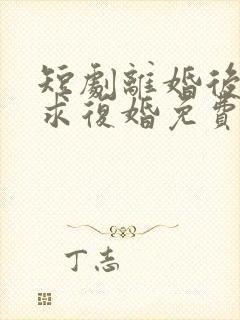 短劇離婚後
求復婚免費
丁志